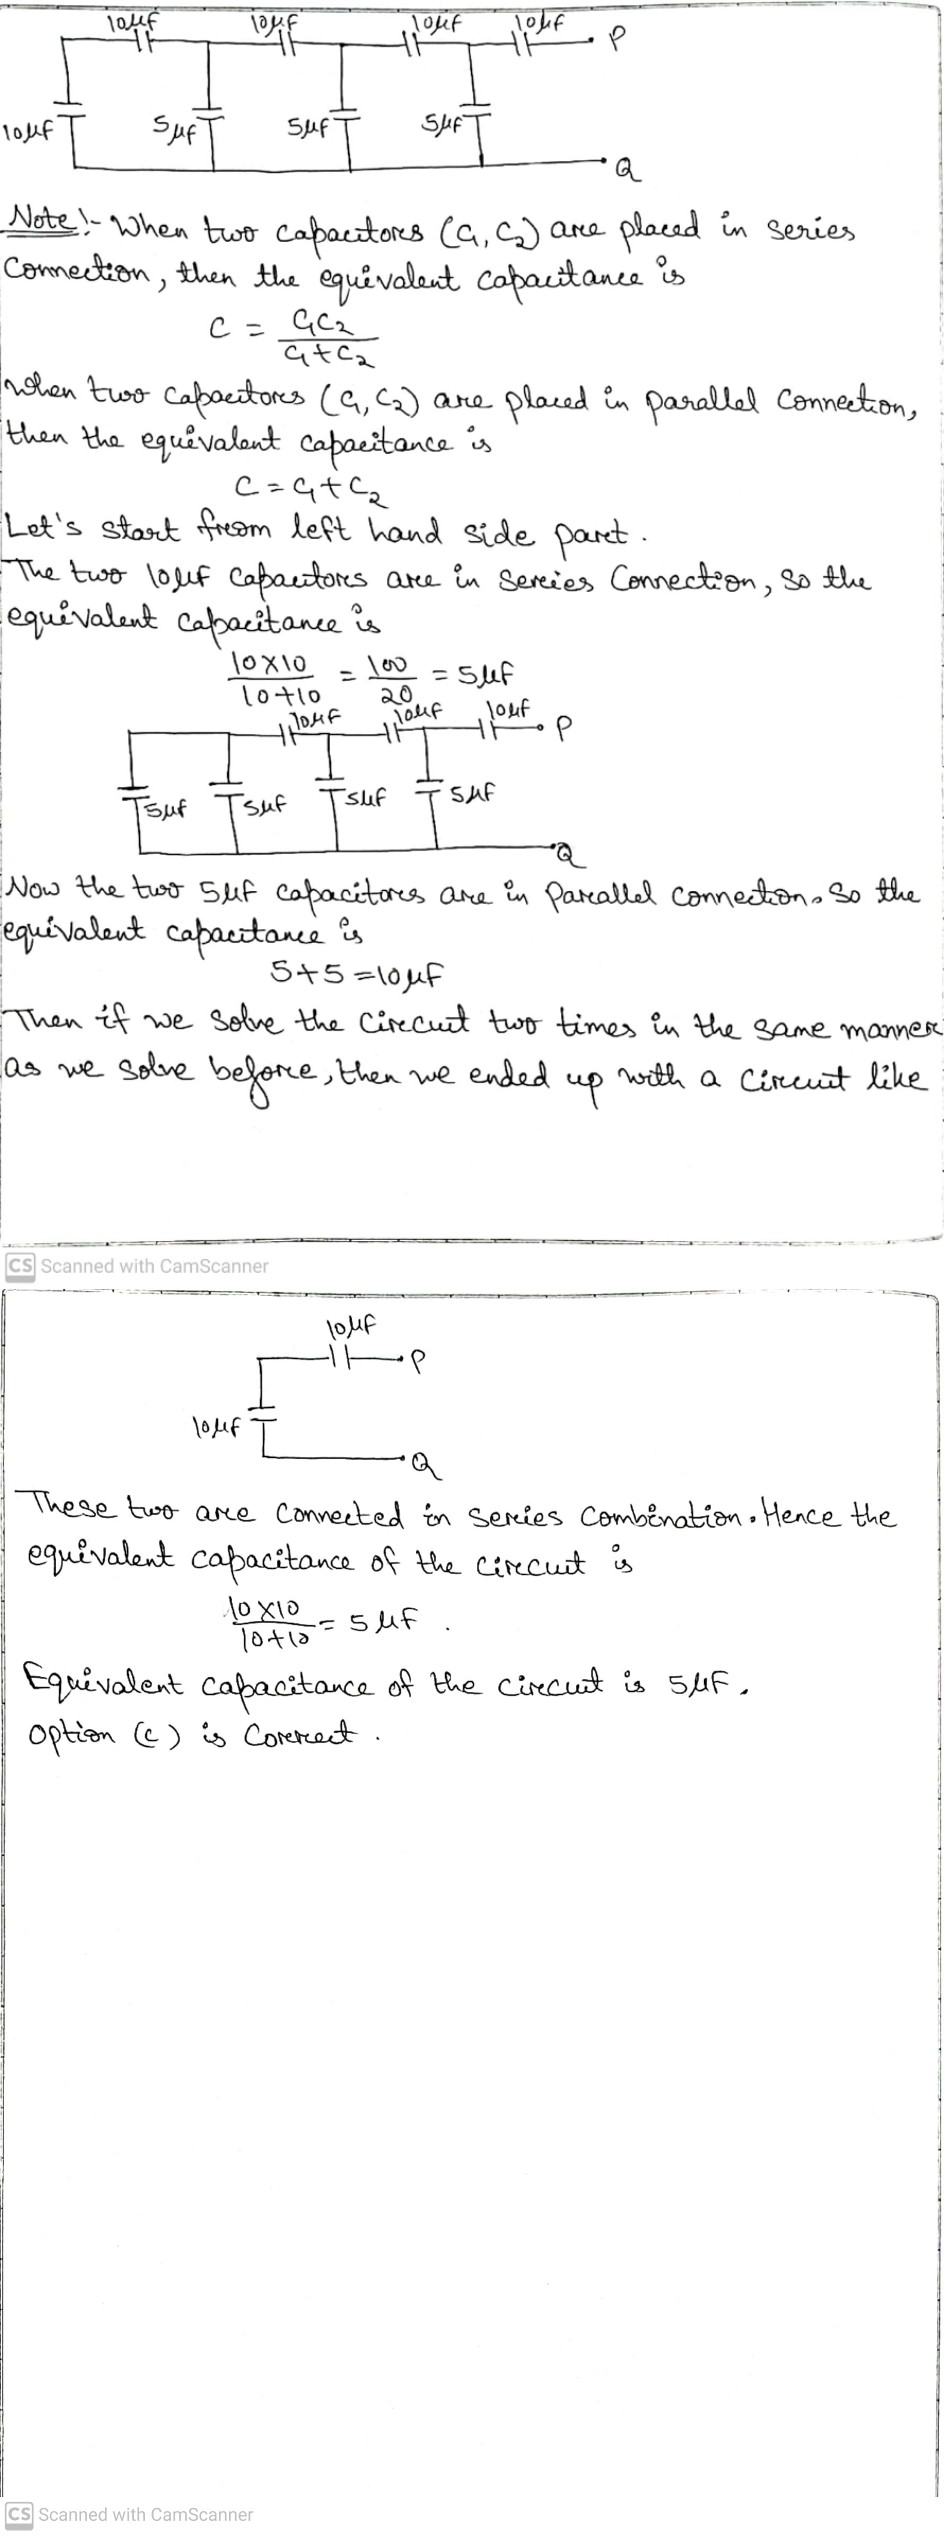 10μF 10μF 10μF 10μF P
10μF 5μF 5μF 5μF
Q
Note:- When two capacitors (C1, C2) are placed in series
Connection, then the equivalent capacitance is
C = C1C2
C1+C2
When two capacitors (C1, C2) are placed in parallel Connection,
then the equivalent capacitance is
C = C1+C2
Let's start from left hand side part.
The two 10μF Capacitors are in Series Connection, So the
equivalent capacitance is
10×10 = 100 = 5μF
10+10 20
10μF 10μF 10μF P
5μF 5μF 5μF 5μF
Q
Now the two 5μF capacitors are in Parallel connection. So the
equivalent capacitance is
5+5=10μF
Then if we Solve the Circuit two times in the same manner
as we solve before, then we ended up with a Circuit like
CS Scanned with CamScanner
10μF
P
10μF
Q
These two are Connected in Series Combination. Hence the
equivalent capacitance of the circuit is
10×10 = 5μF.
10+10
Equivalent capacitance of the circuit is 5μF.
Option (c) is Correct.
CS Scanned with CamScanner